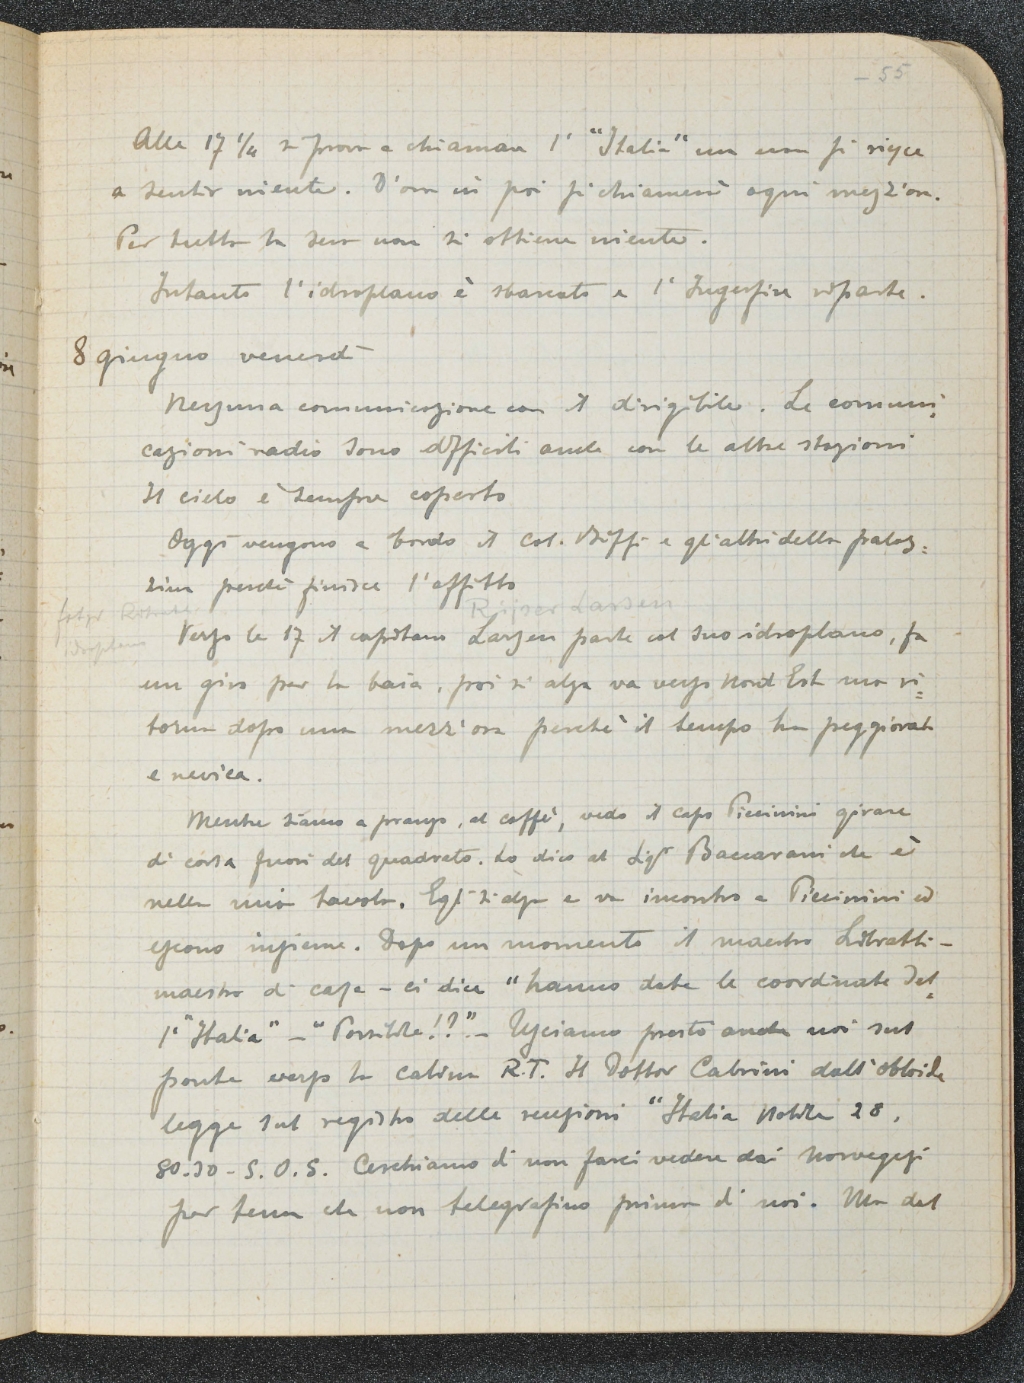 - 55
Alle 17 ¼ si prova a chiamare l' "Italia" ma non si riesce
a sentir niente. D'ora in poi si chiamerà ogni mezz'ora.
Per tutta la sera non si ottiene niente.
Intanto l'idroplano è sbarcato e l' Ingerfire riparte.
8 giugno venerdì
Nessuna comunicazione con il dirigibile. Le comuni-
cazioni radio sono difficili anche con le altre stazioni
Il cielo è sempre coperto
Oggi vengono a bordo il col. Biffi e gli altri della palaz=
zina perchè finisce l'affitto
Riiser Larsen
idroplano
Verso le 17 il capitano Larsen parte col suo idroplano, fa
un giro per la baia, poi si alza va verso Nord Est ma ri=
torna dopo una mezz'ora perchè il tempo ha peggiorato
e nevica.
Mentre siamo a pranzo, al caffè, vedo il capo Piccinini girare
di corsa fuori del quadrato. Lo dico al Sigr Baccarani che è
nella mia tavola. Egli si alza e va incontro a Piccinini ed
escono insieme. Dopo un momento il maestro Libratti -
maestro di casa - ci dice "hanno dato le coordinate del=
l'"Italia" - "Possibile!?" - Usciamo presto anche noi sul
ponte verso la cabina R.T. Il Dottor Cabrini dall'obloide
legge sul registro delle recezioni "Italia Nobile 28,
80.30 - S.O.S. Cerchiamo di non farci vedere dai Norvegesi
per tema che non telegrafino prima di noi. Ma dal